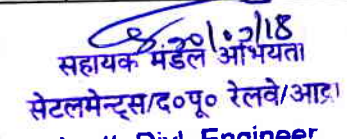 20/02/18
सहायक मंडल अभियंता
सेटलमेन्ट्स/द०पू० रेलवे/आद्रा
Divl. Engineer